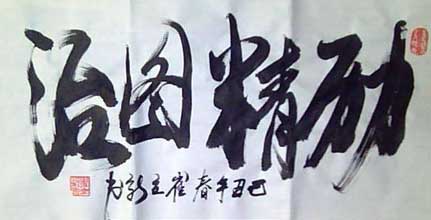 励精图治
己丑年春崔立新书